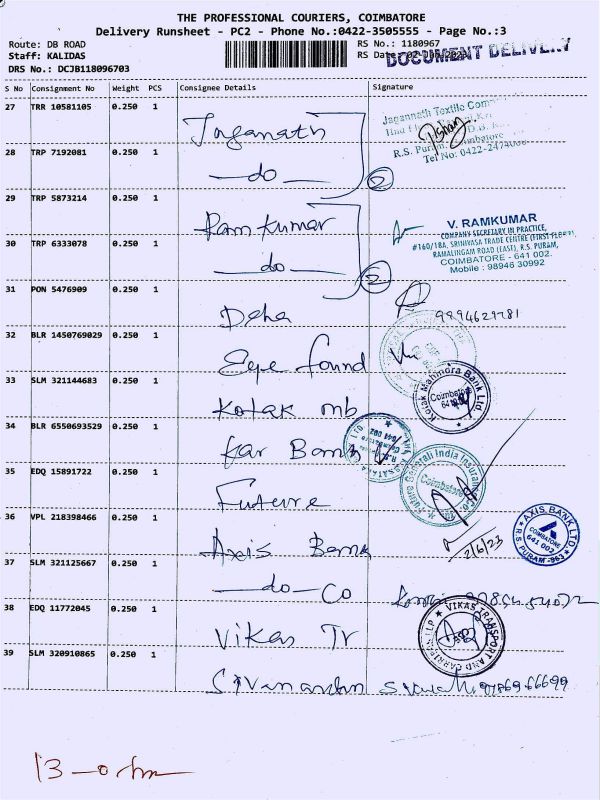 THE PROFESSIONAL COURIERS, COIMBATORE
Delivery Runsheet - PC2 - Phone No.:0422-3505555 - Page No.:3
Route: DB ROAD
RS No.: 1180967
DOCUMENT DELIVERY
Staff: KALIDAS
RS Date:
DRS No.: DCJB118096703
S No Consignment No Weight PCS Consignee Details Signature
27 TRR 10581105 0.250 1 Jaganath
Jagannath Textile
R.S. Puram,
Tel No: 0422-
28 TRP 7192081 0.250 1 —do— 2
29 TRP 5873214 0.250 1 Ramkumar
V. RAMKUMAR
COMPANY SECRETARY IN PRACTICE,
#160/18A, SRINIVASA TRADE CENTRE (FIRST FLOOR),
RAMALINGAM ROAD (EAST), R.S. PURAM,
COIMBATORE - 641 002.
Mobile : 98946 30992
30 TRP 6333078 0.250 1 —do— 2
31 PON 5476909 0.250 1
32 BLR 1450769029 0.250 1 Eye found
33 SLM 321144683 0.250 1 Kotak mb
Kotak Mahindra Bank Ltd.
Coimbatore
34 BLR 6550693529 0.250 1 Kar Bank
641 002
35 EDQ 15891722 0.250 1 Future
Future Generali India Insurance Co.
Coimbatore
36 VPL 218398466 0.250 1 Axis Bank
2/6/23
AXIS BANK LTD
COIMBATORE
641 002
R.S. PURAM
37 SLM 321125667 0.250 1 —do— Co
38 EDQ 11772045 0.250 1 Vikas Tr
VIKAS TRANSPORT AND CARRIERS LLP
39 SLM 320910865 0.250 1